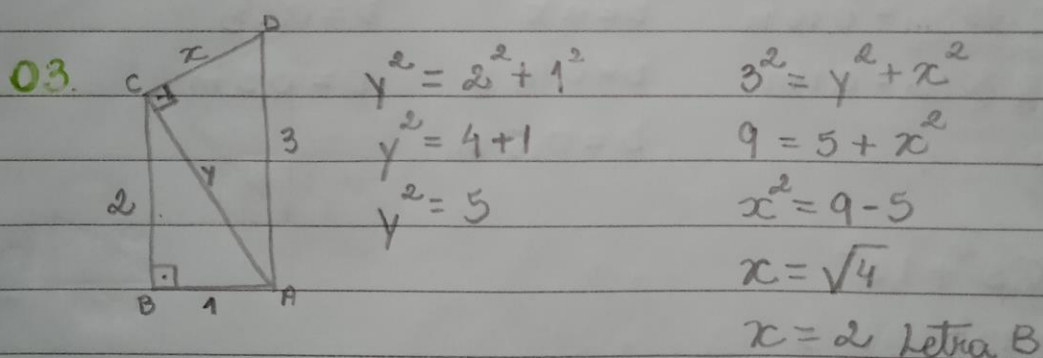 03.
D
x
C
3
y
2
B
1
A
y² = 2² + 1²
y² = 4 + 1
y² = 5
3² = y² + x²
9 = 5 + x²
x² = 9 - 5
x = √4
x = 2 Letra B